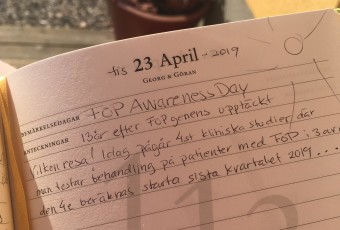 tis 23 April - 2019
GEORG & GÖRAN
BEMÄRKELSEDAGAR FOP Awareness Day
ANTECKNINGAR 13 år efter FOP genens upptäckt
Vilken resa! Idag pågår 4st kliniska studier, där
man testar behandling på patienter med FOP i 3 av
den 4e beräknas starta sista kvartalet 2019...
113